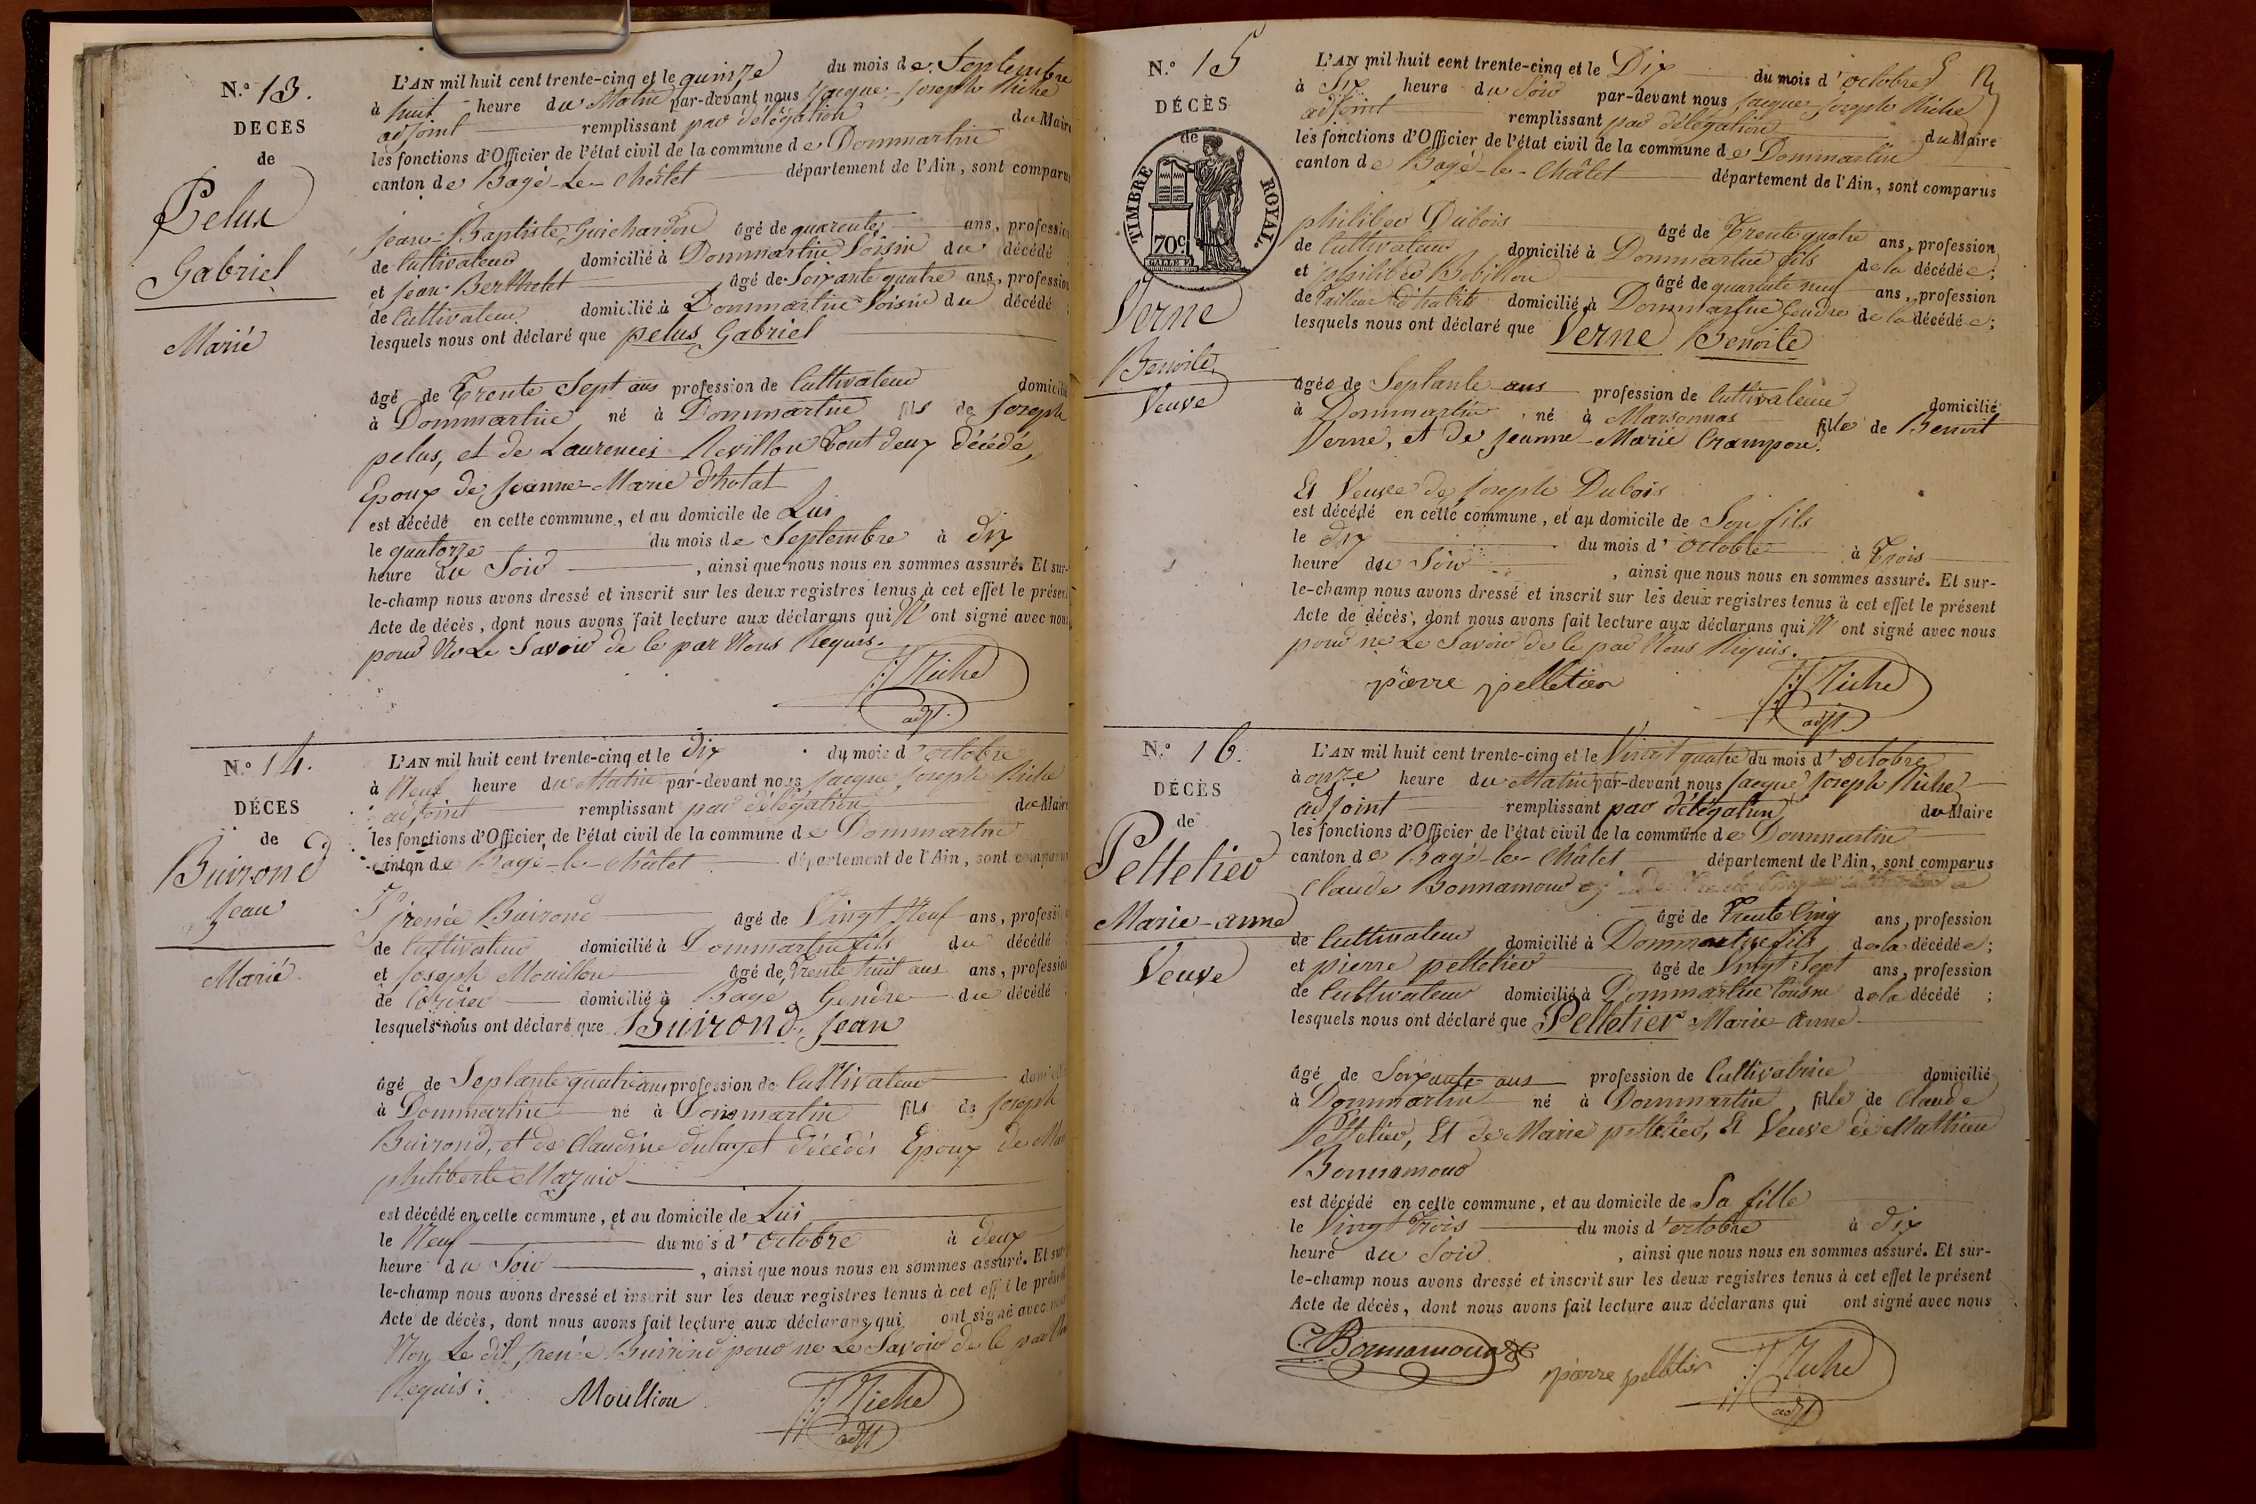 N.º 13.
DÉCÈS
de
Pelus
Gabriel
Marié
L'AN mil huit cent trente-cinq et le quinze du mois de Septembre
à huit heure du Matin par-devant nous Jacque Joseph Niche
adjoint remplissant par délégation du Maire
les fonctions d'Officier de l'état civil de la commune de Dommartin
canton de Bagé-le-Châtel département de l'Ain, sont comparus
jean-Baptiste Guichardon âgé de quarente ans, profession
de Cultivateur domicilié à Dommartin Voisin du décédé ;
et jean Berthelet âgé de Soixante quatre ans, profession
de Cultivateur domicilié à Dommartin Voisin du décédé ;
lesquels nous ont déclaré que pelus Gabriel
âgé de Trente Sept ans profession de Cultivateur domicilié
à Dommartin né à Dommartin fils de Joseph
pelus, et de Laurence Revillon Tout deux décédé,
Epoux de Jeanne-Marie
est décédé en cette commune, et au domicile de Lui
le quatorze du mois de Septembre à dix
heure du Soir , ainsi que nous nous en sommes assuré. Et sur-
le-champ nous avons dressé et inscrit sur les deux registres tenus à cet effet le présent
Acte de décès, dont nous avons fait lecture aux déclarans qui N' ont signé avec nous
pour Ne Le Savoir de le par Nous Requis.
JJ Niche
adjt.
N.º 14.
DÉCÈS
de
Buirond
Jean
Marié
L'AN mil huit cent trente-cinq et le dix du mois d'octobre
à Neuf heure du Matin par-devant nous Jacque Joseph Niche
adjoint remplissant par délégation du Maire
les fonctions d'Officier de l'état civil de la commune de Dommartin
canton de Bagé-le-Châtel département de l'Ain, sont comparus
irenée Buirond âgé de Vingt Neuf ans, profession
de Cultivateur domicilié à Dommartin fils du décédé
et Joseph Mouillon âgé de Trente huit ans ans, profession
de domicilié à Bagé Gendre du décédé ;
lesquels nous ont déclaré que Buirond, Jean
âgé de Septante quatre ans profession de Cultivateur domicilié
à Dommartin né à Dommartin fils de Joseph
Buirond, et de Claudine décédés Epoux de
philiberte Mazuir
est décédé en cette commune, et au domicile de Lui
le Neuf du mois d'octobre à deux
heure du Soir , ainsi que nous nous en sommes assuré. Et sur-
le-champ nous avons dressé et inscrit sur les deux registres tenus à cet effet le présent
Acte de décès, dont nous avons fait lecture aux déclarans qui ont signé avec nous
Non Le dit irenée Buirond pour ne Le Savoir de le par
Requis.
Moullion
JJ Niche
adjt
N.º 15
DÉCÈS
de
TIMBRE ROYAL.
70c
Verne
Benoite
Veuve
L'AN mil huit cent trente-cinq et le Dix du mois d'octobre
à Six heure du Soir par-devant nous Jacque Joseph Niche
adjoint remplissant par délégation du Maire
les fonctions d'Officier de l'état civil de la commune de Dommartin
canton de Bagé-le-Châtel département de l'Ain, sont comparus
philiber Dubois âgé de Trente quatre ans, profession
de Cultivateur domicilié à Dommartin fils de la décédée ;
et philiber Bobillon âgé de quarante neuf ans, profession
de tailleur d'habits domicilié à Dommartin Gendre de la décédée ;
lesquels nous ont déclaré que Verne Benoite
âgée de Septante ans profession de Cultivateur domicilié
à Dommartin né à Marsonnas fille de Benoit
Verne, et de Jeanne-Marie Crampon.
Et Veuve de Joseph Dubois
est décédé en cette commune, et au domicile de Son fils
le dix du mois d'octobre à Trois
heure du Soir , ainsi que nous nous en sommes assuré. Et sur-
le-champ nous avons dressé et inscrit sur les deux registres tenus à cet effet le présent
Acte de décès, dont nous avons fait lecture aux déclarans qui N' ont signé avec nous
pour ne Le Savoir de le par Nous Requis.
pierre pelletier
JJ Niche
adjt
N.º 16.
DÉCÈS
de
Pelletier
Marie-anne
Veuve
L'AN mil huit cent trente-cinq et le Vingt quatre du mois d'octobre
à onze heure du Matin par-devant nous Jacque Joseph Niche
adjoint remplissant par délégation du Maire
les fonctions d'Officier de l'état civil de la commune de Dommartin
canton de Bagé-le-Châtel département de l'Ain, sont comparus
Claude Bonnamour
âgé de Trente Cinq ans, profession
de Cultivateur domicilié à Dommartin fils de la décédée ;
et pierre pelletier âgé de Vingt Sept ans, profession
de Cultivateur domicilié à Dommartin Cousin de la décédé ;
lesquels nous ont déclaré que Pelletier Marie anne
âgé de Soixante ans profession de Cultivatrice domicilié
à Dommartin né à Dommartin, fille de Claude
Pelletier, Et de Marie pelletier, Et Veuve de Mathieu
Bonnamour
est décédé en cette commune, et au domicile de Sa fille
le Vingt Trois du mois d'octobre à dix
heure du Soir , ainsi que nous nous en sommes assuré. Et sur-
le-champ nous avons dressé et inscrit sur les deux registres tenus à cet effet le présent
Acte de décès, dont nous avons fait lecture aux déclarans qui ont signé avec nous
C. Bonnamour
pierre pelletier
JJ Niche
adjt